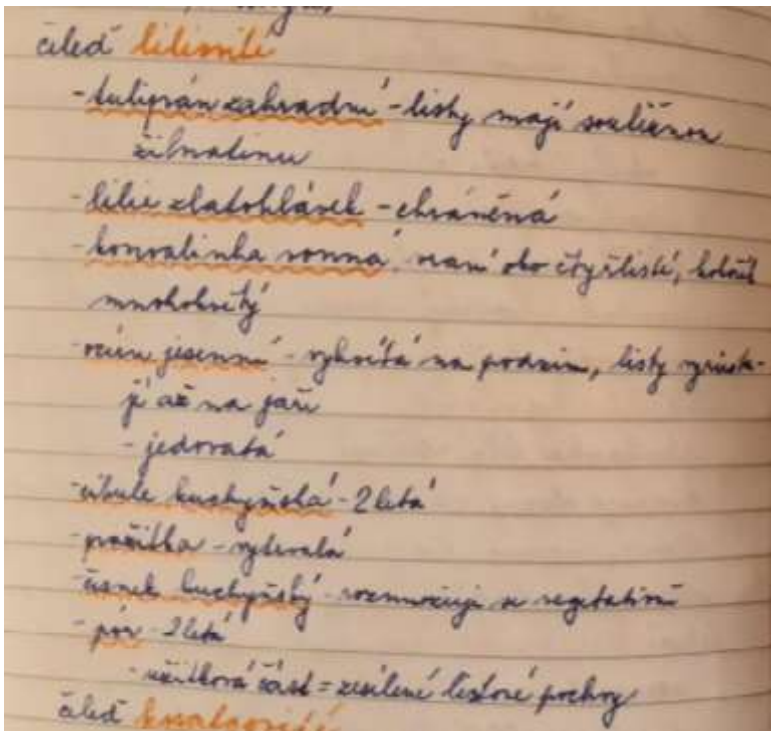 čeleď liliovité
- tulipán zahradní - listy mají souběžnou
žilnatinu
- lilie zlatohlávek - chráněná
- konvalinka vonná, vraní oko čtyřlisté, kokořík
mnohokvětý
- ocún jesenní - vykvítá na podzim, listy vyrůsta-
jí až na jaře
- jedovatá
- cibule kuchyňská - 2letá
- pažitka - vytrvalá
- česnek kuchyňský - rozmnožuje se vegetativně
- pór - 2letá
- užitková část = zesílené listové pochvy
čeleď